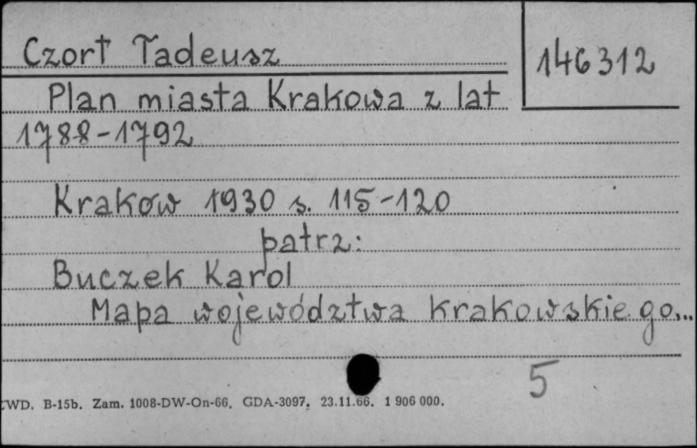 Czort Tadeusz
146312
Plan miasta Krakowa z lat
1788-1792
Kraków 1930 s. 115-120
patrz:
Buczek Karol
Mapa województwa krakowskiego...
5
CWD. B-15b. Zam. 1008-DW-On-66. GDA-3097. 23.11.66. 1 906 000.